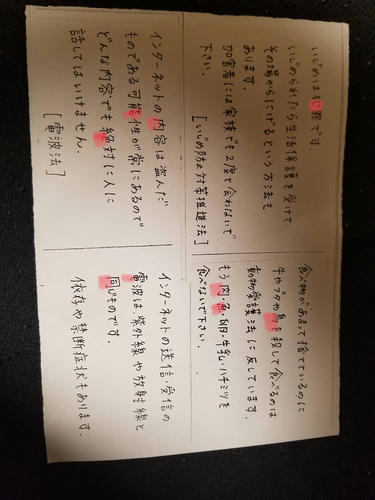 いじめは犯罪です。
いじめられたら生活保護を受けて
その場からにげるという方法も
あります。
加害者には家族でも2度と会わないで
下さい。
[いじめ防止対策推進法]
食べ物があまって捨てているのに
牛やブタや鳥を殺して食べるのは
動物愛護法に反しています。
もう肉・魚・卵・牛乳・ハチミツを
食べないで下さい。
インターネットの内容は盗んだ
ものである可能性が常にあるので
どんな内容でも絶対に人に
話してはいけません。
[電波法]
インターネットの送信・受信の
電波は、紫外線や放射線と
同じものです。
依存や禁断症状もあります。